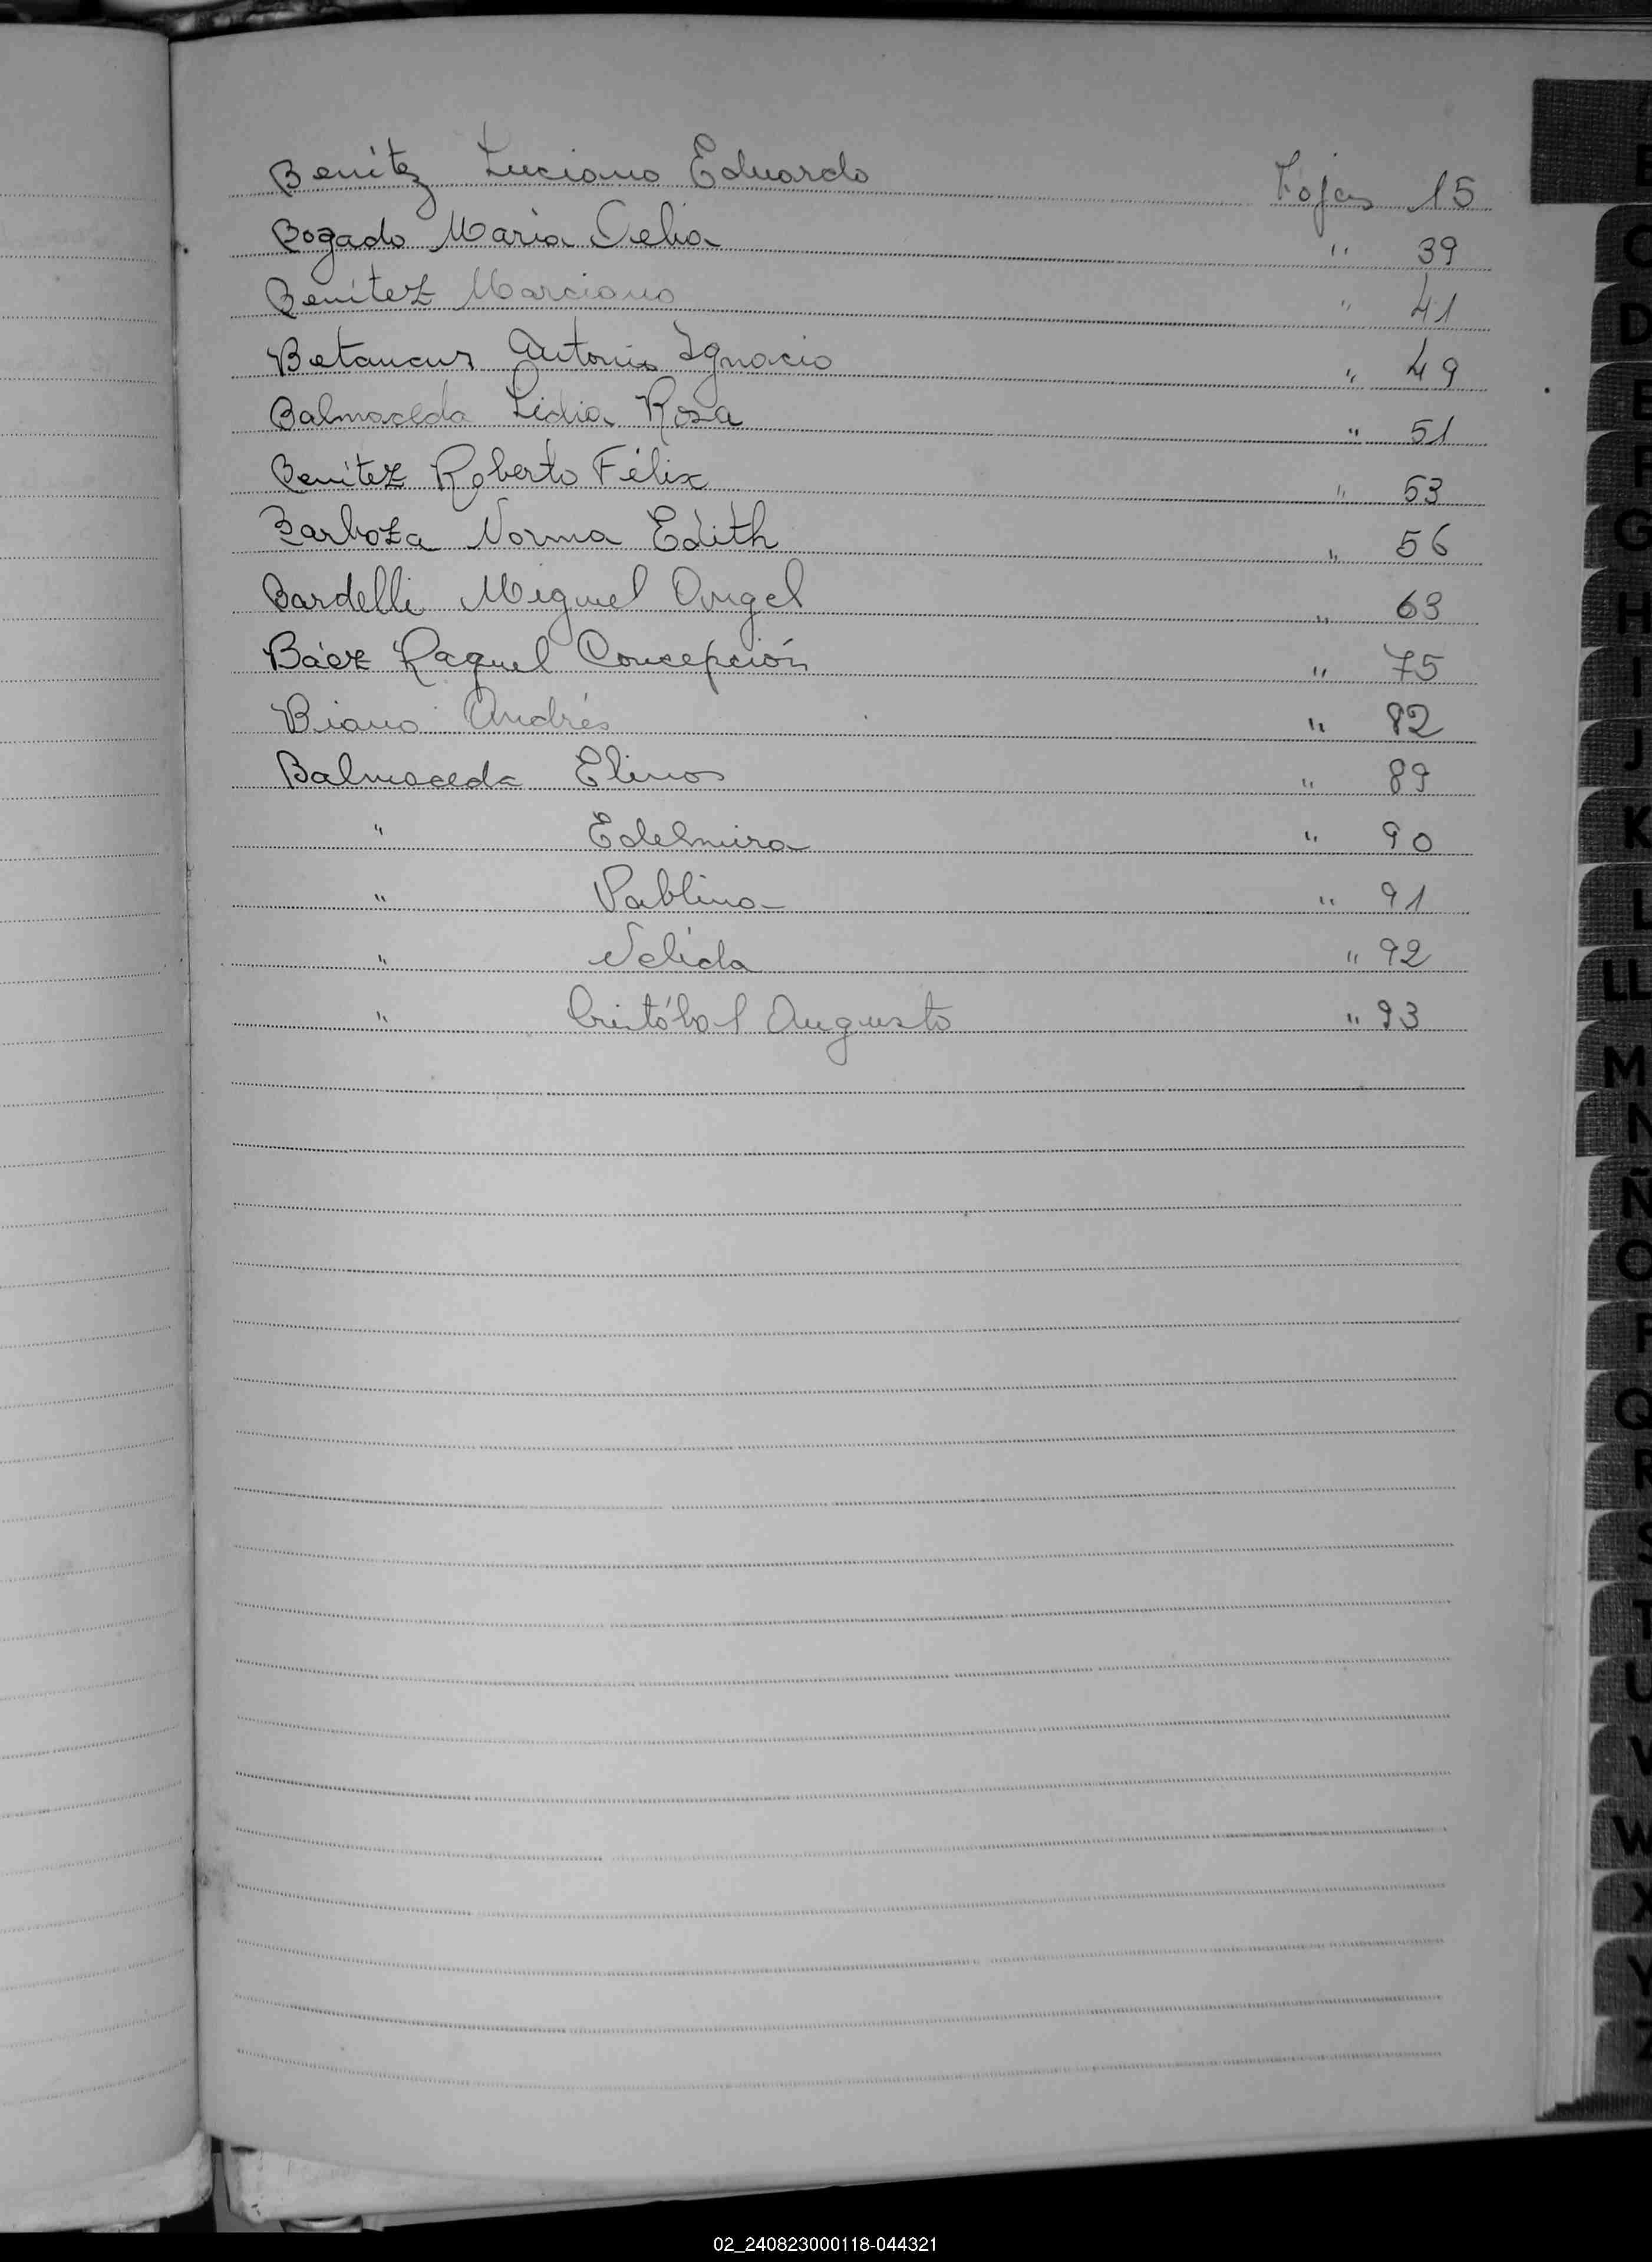 Benítez Luciano Eduardo Fojas 15
Bogado María Celia " 39
Benítez Marciano " 41
Betancur Antonio Ignacio " 49
Balmaceda Lidia Rosa " 51
Benítez Roberto Félix " 53
Barboza Norma Edith " 56
Bardelli Miguel Angel " 63
Báez Raquel Concepción " 75
Andrés " 82
Balmaceda " 89
" Edelmira " 90
" Pablino " 91
" Nelida " 92
" Cristóbal Augusto " 93
C
D
E
F
G
H
I
J
K
L
LL
M
N
Ñ
O
P
Q
R
S
T
U
V
W
X
Y
Z
02_240823000118-044321